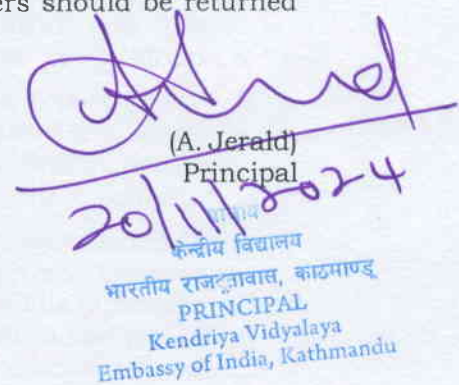 ers should be returned
(A. Jerald)
Principal
20/11/2024
केन्द्रीय विद्यालय
भारतीय काठमाण्डू
PRINCIPAL
Kendriya Vidyalaya
Embassy of India, Kathmandu